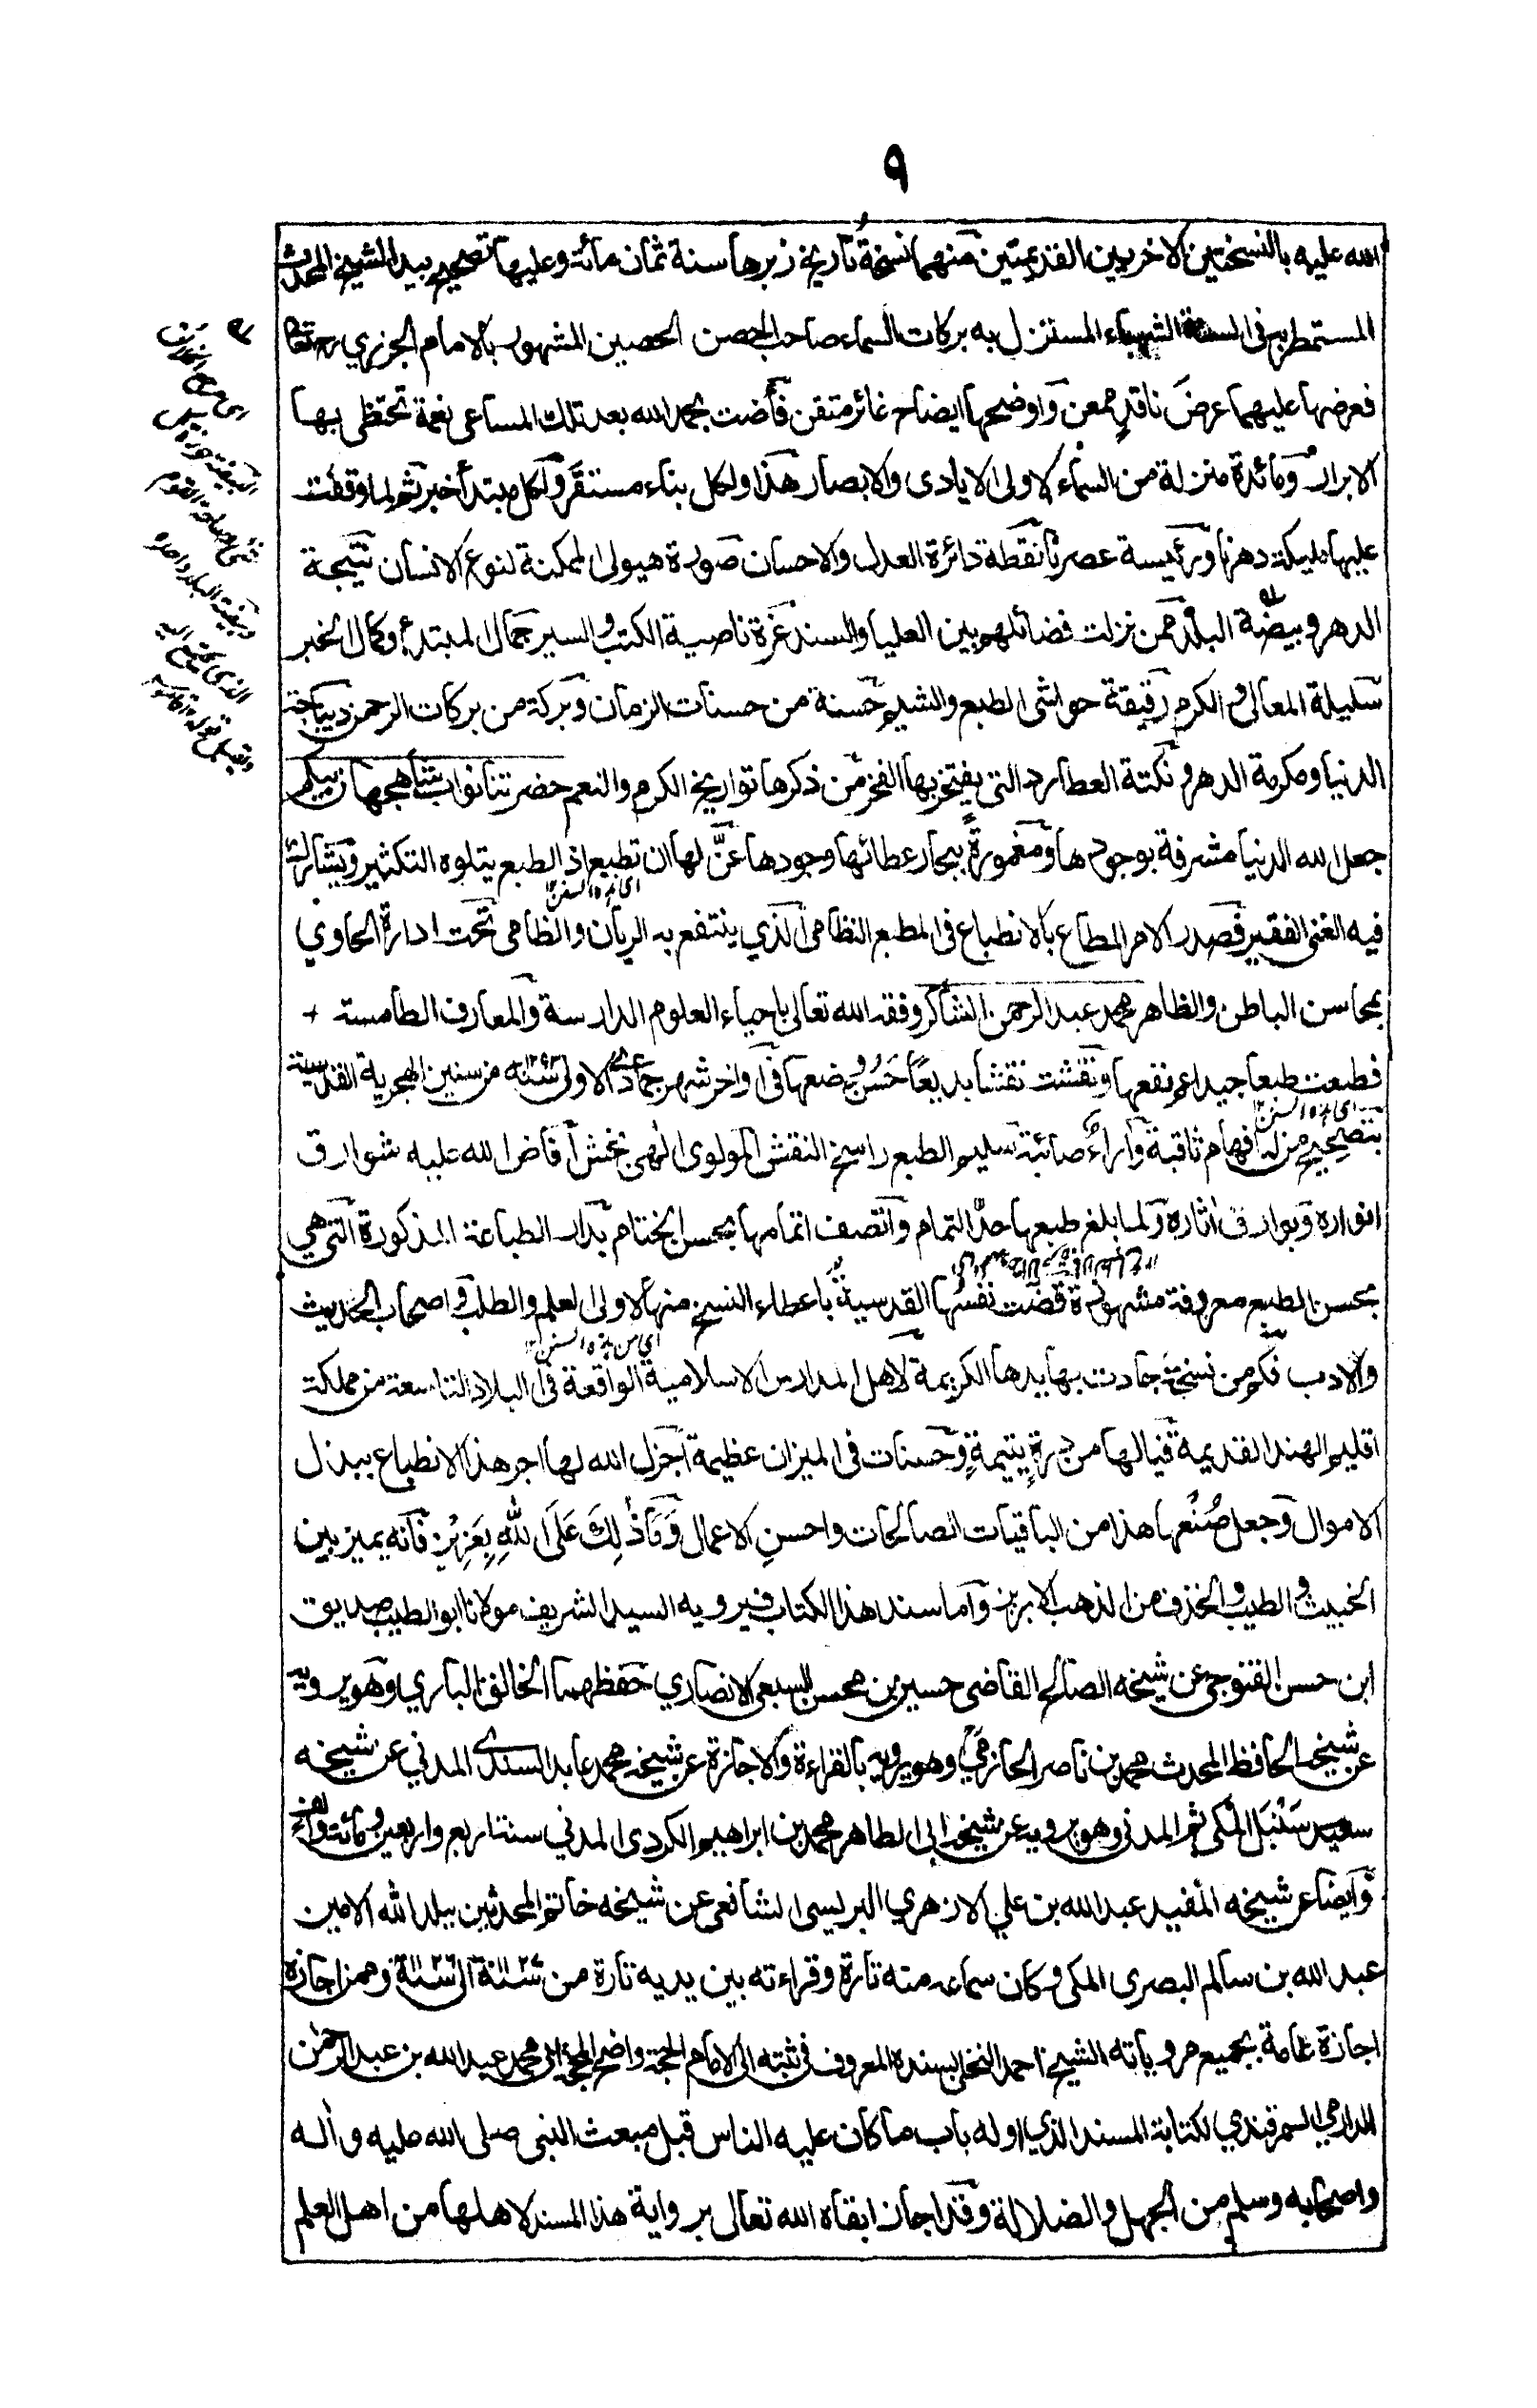 ٩
الله عليه بالنسختين الاخريين القديمتين منهما نسخة تاريخ زبرها سنة ثمان مائة وعليها تصحيح بيد الشيخ المحدث
المستمطر به فى السنة الشهباء المستنزل به بركات السماء صاحب الحصن الحصين المشهور بالامام الجزري رح تعا
فعرضها عليهما عرض ناقد ممعن واوضحها ايضاح غائر متقن فأضت بحمد الله بعد تلك المساعى نعمة تحتظى بها
الابرار ومائدة منزلة من السماء لاولى الايادى والابصار هذا ولكل بناء مستقر ولكل مبتدأ خبر ثم لما وقفت
عليها مليكة دهرنا ورئيسة عصرنا نقطة دائرة العدل والاحسان صورة هيولى الممكنة لنوع الانسان نتيجة
الدهر وبيضة البلد ممن نزلت فضائلهم بين العليا والسند غرة ناصية الكتب والسير جمال المبتدأ وكمال الخبر
سليلة المعالى والكرم رقيقة حواشى الطبع والشيم حسنة من حسنات الزمان وبركة من بركات الرحمن ديباجة
الدنيا ومكرمة الدهر ونكتة العطارد التى يفتخر بها الفخر من ذكرها تواريخ الكرم والنعم حضرتنا نواب شاهجهان بيكم
جعل الله الدنيا مشرفة بوجودها ومغمورة ببحار عطائها وجودها عنّ لها ان تطبع اذ الطبع يتلوه التكثير ويتشارك
اى هذه السنن
فيه الغنى الفقير فصدر الامر المطاع بالانطباع فى المطبع النظامى الذي ينتفع به الريان والظامى تحت ادارة الحاوي
بمحاسن الباطن والظاهر محمد عبد الرحمن الشاكر وفقه الله تعالى باحياء العلوم الدارسة والمعارف الطامسة +
فطبعت طبعا جيدا عم نفعها ونقشت نقشا بديعا حسن وضعها فى اواخر شهر جمادى الاولى سنة ١٢٩٣ من سنين الهجرية القدسية
اى هذه السنن
بتصحيح من له افهام ثاقبة وآراء صائبة سليم الطبع راسخ النقش المولوى الهى بخش أفاض الله عليه شوارق
انواره وبوارق أثاره ولما بلغ طبعها حد التمام واتصف اتمامها بحسن الختام بدار الطباعة المذكورة التى هي
بحسن الطبع معروفة مشهورة قضت نفسها القدسية باعطاء النسخ منها لاولى العلم والطلب واصحاب الحديث
اي من هذه السنن
والادب فكم من نسخة جادت بها يدها الكريمة لاهل المدارس الاسلامية الواقعة فى البلاد الشاسعة من مملكة
اقليم الهند القديمة فيالها من درة يتيمة وحسنات فى الميزان عظيمة اجزل الله لها اجر هذا الانطباع ببذل
الاموال وجعل صُنْعها هذا من الباقيات الصالحات واحسن الاعمال وَمَا ذٰلِكَ عَلَى اللّٰهِ بِعَزِيْزٍ فانه يميز بين
الخبيث والطيب والخذف من الذهب الابريز واما سند هذا الكتاب فيرويه السيد الشريف مولانا ابو الطيب صديق
ابن حسن القنوجى عن شيخه الصالح القاضى حسين بن محسن السبعى الانصاري حفظهما الخالق الباري وهو يرويه
عن شيخه الحافظ المحدث محمد بن ناصر الحازمي وهو يرويه بالقراءة والاجازة عن شيخه محمد عابد السندى المدني عن شيخه
سعيد سَنْبَل المكى ثم المدنى وهو يرويه عن شيخه ابى الطاهر محمد بن ابراهيم الكردى المدني سنة اربع واربعين ومائة والف
وايضا عن شيخه المفيد عبد الله بن علي الازهري البرلسى الشافعى عن شيخه خاتم المحدثين ببلد الله الامين
عبد الله بن سالم البصرى المكى وكان سماعه منه تارة وقراءته بين يديه تارة من سنة الى سنة وممن اجازه
اجازة عامة بجميع مروياته الشيخ احمد النخلى بسنده المعروف فى ثبته الى الامام الحجة واضح المحجة ابى محمد عبد الله بن عبد الرحمٰن
الدارمي السمرقندي لكتابة المسند الذي اوله باب ما كان عليه الناس قبل مبعث النبى صلى الله عليه وأله
واصحابه وسلم من الجهل والضلالة وقد اجاز ابقاه الله تعالى برواية هذا المسند لاهلها من اهل العلم